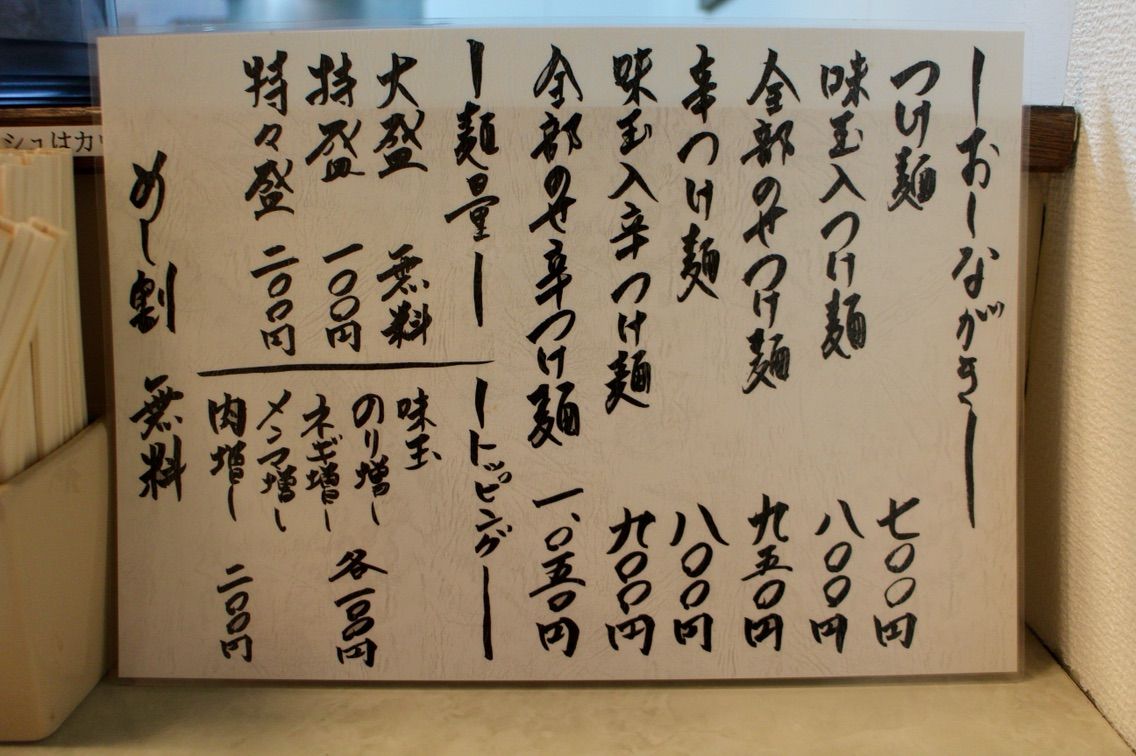 ーおしながきー
つけ麺 七〇〇円
味玉入つけ麺 八〇〇円
全部のせつけ麺 九五〇円
辛つけ麺 八〇〇円
味玉入辛つけ麺 九〇〇円
全部のせ辛つけ麺 一、〇五〇円
ー麺量ー
大盛 無料
特盛 一〇〇円
特々盛 二〇〇円
ートッピングー
味玉
のり増し
ネギ増し 各一〇〇円
メンマ増し
肉増し 二〇〇円
めし割 無料
シュはカ